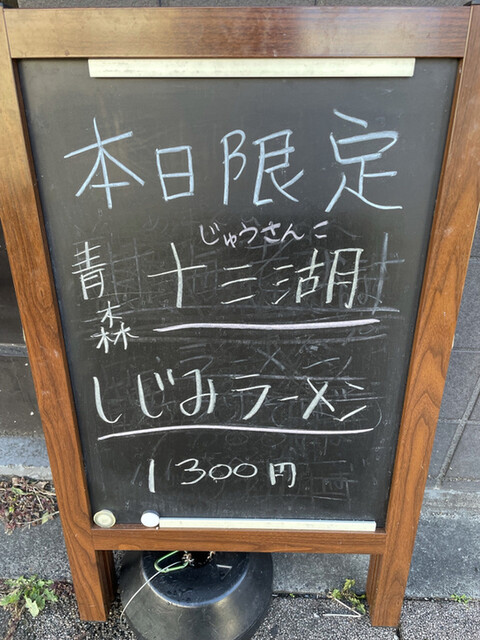 本日限定
じゅうさんこ
青森 十三湖
しじみラーメン
1300円